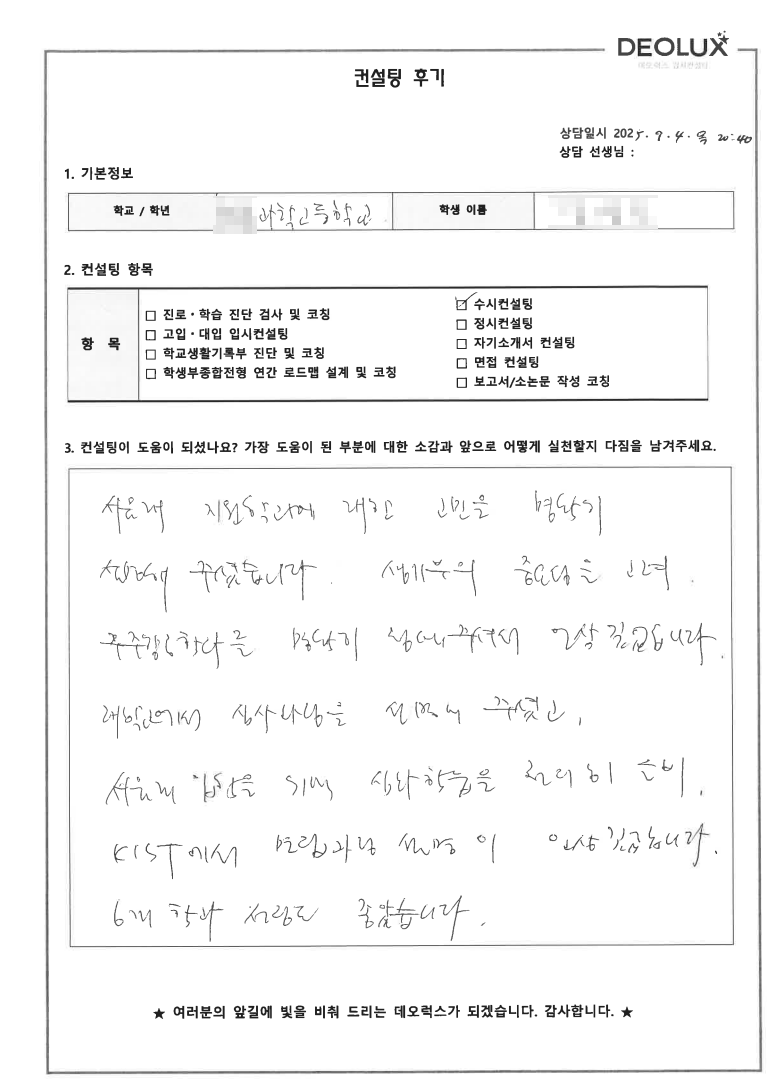 DEOLUX
데오럭스 입시컨설팅
컨설팅 후기
상담일시 2025. 9. 4. 목 20:40
상담 선생님 :
1. 기본정보
학교 / 학년 과학고등학교 학생 이름
2. 컨설팅 항목
항 목
□ 진로·학습 진단 검사 및 코칭
□ 고입·대입 입시컨설팅
□ 학교생활기록부 진단 및 코칭
□ 학생부종합전형 연간 로드맵 설계 및 코칭
☑ 수시컨설팅
□ 정시컨설팅
□ 자기소개서 컨설팅
□ 면접 컨설팅
□ 보고서/소논문 작성 코칭
3. 컨설팅이 도움이 되셨나요? 가장 도움이 된 부분에 대한 소감과 앞으로 어떻게 실천할지 다짐을 남겨주세요.
서울대 지원학과에 대한 고민을 명확히
주셨습니다. 생기부의 중요성을 고려.
를 명확히 주셔서 인상 깊었습니다.
대학교에서 심사과정을 설명해 주셨고,
서울대 입학을 위해 심화학습을 철저히 준비,
KIST에서 설명이 인상 깊습니다.
6개 학과 추천도 좋았습니다.
★ 여러분의 앞길에 빛을 비춰 드리는 데오럭스가 되겠습니다. 감사합니다. ★